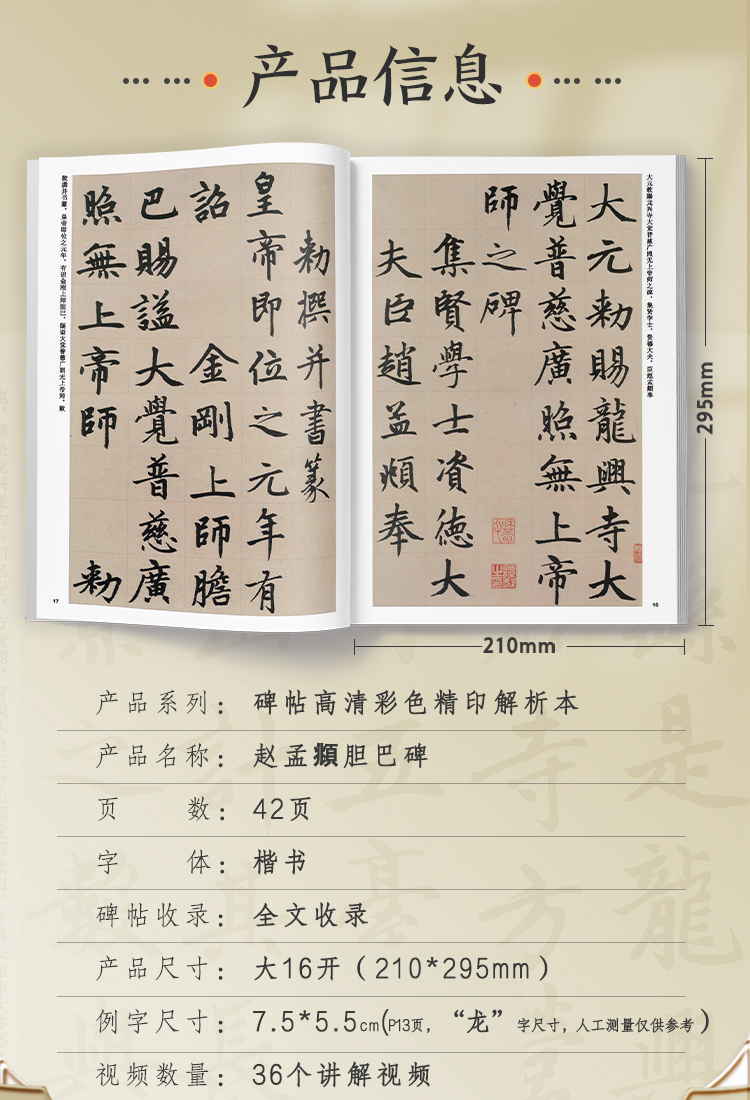 产品信息
大元敕赐龙兴寺大觉普慈广照无上帝师之碑，集贤学士，资德大夫，臣赵孟頫奉
大元勅賜龍興寺大
覺普慈廣照無上帝
師之碑
集賢學士資德大
夫臣趙孟頫奉
16
勅撰并書篆
皇帝即位之元年有
詔金剛上師膽
巴賜謚大覺普慈廣
照無上帝師勅
敕撰并书篆，皇帝即位之元年，有诏金刚上师胆巴，赐谥大觉普慈广照无上帝师，敕
17
295mm
210mm
产品系列：碑帖高清彩色精印解析本
产品名称：赵孟頫胆巴碑
页数：42页
字体：楷书
碑帖收录：全文收录
产品尺寸：大16开（210*295mm）
例字尺寸：7.5*5.5cm(P13页，“龙”字尺寸，人工测量仅供参考)
视频数量：36个讲解视频